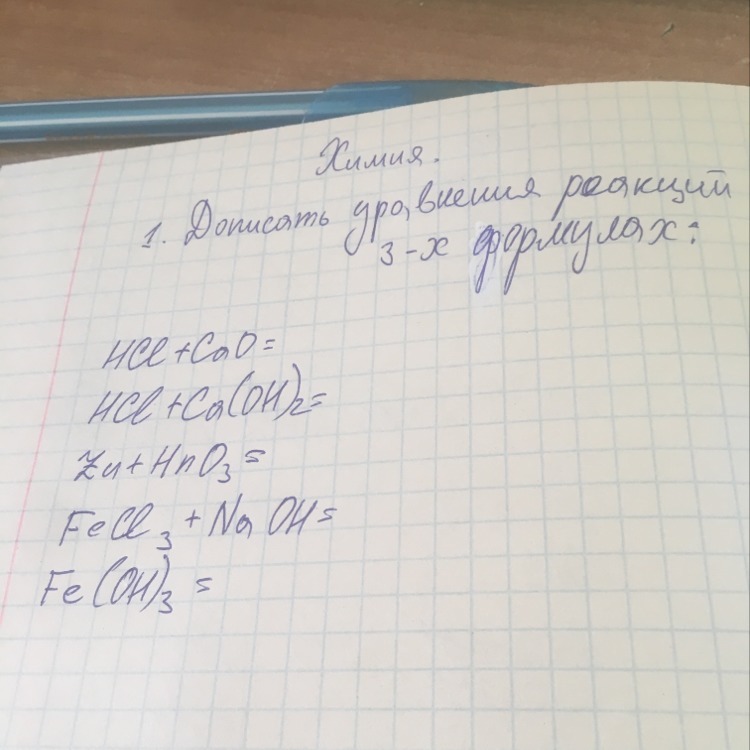 Химия.
1. Дописать уравнения реакций
3-х формулах:
HCl + CaO =
HCl + Ca(OH)₂ =
Zn + HnO₃ =
FeCl₃ + NaOH =
Fe(OH)₃ =